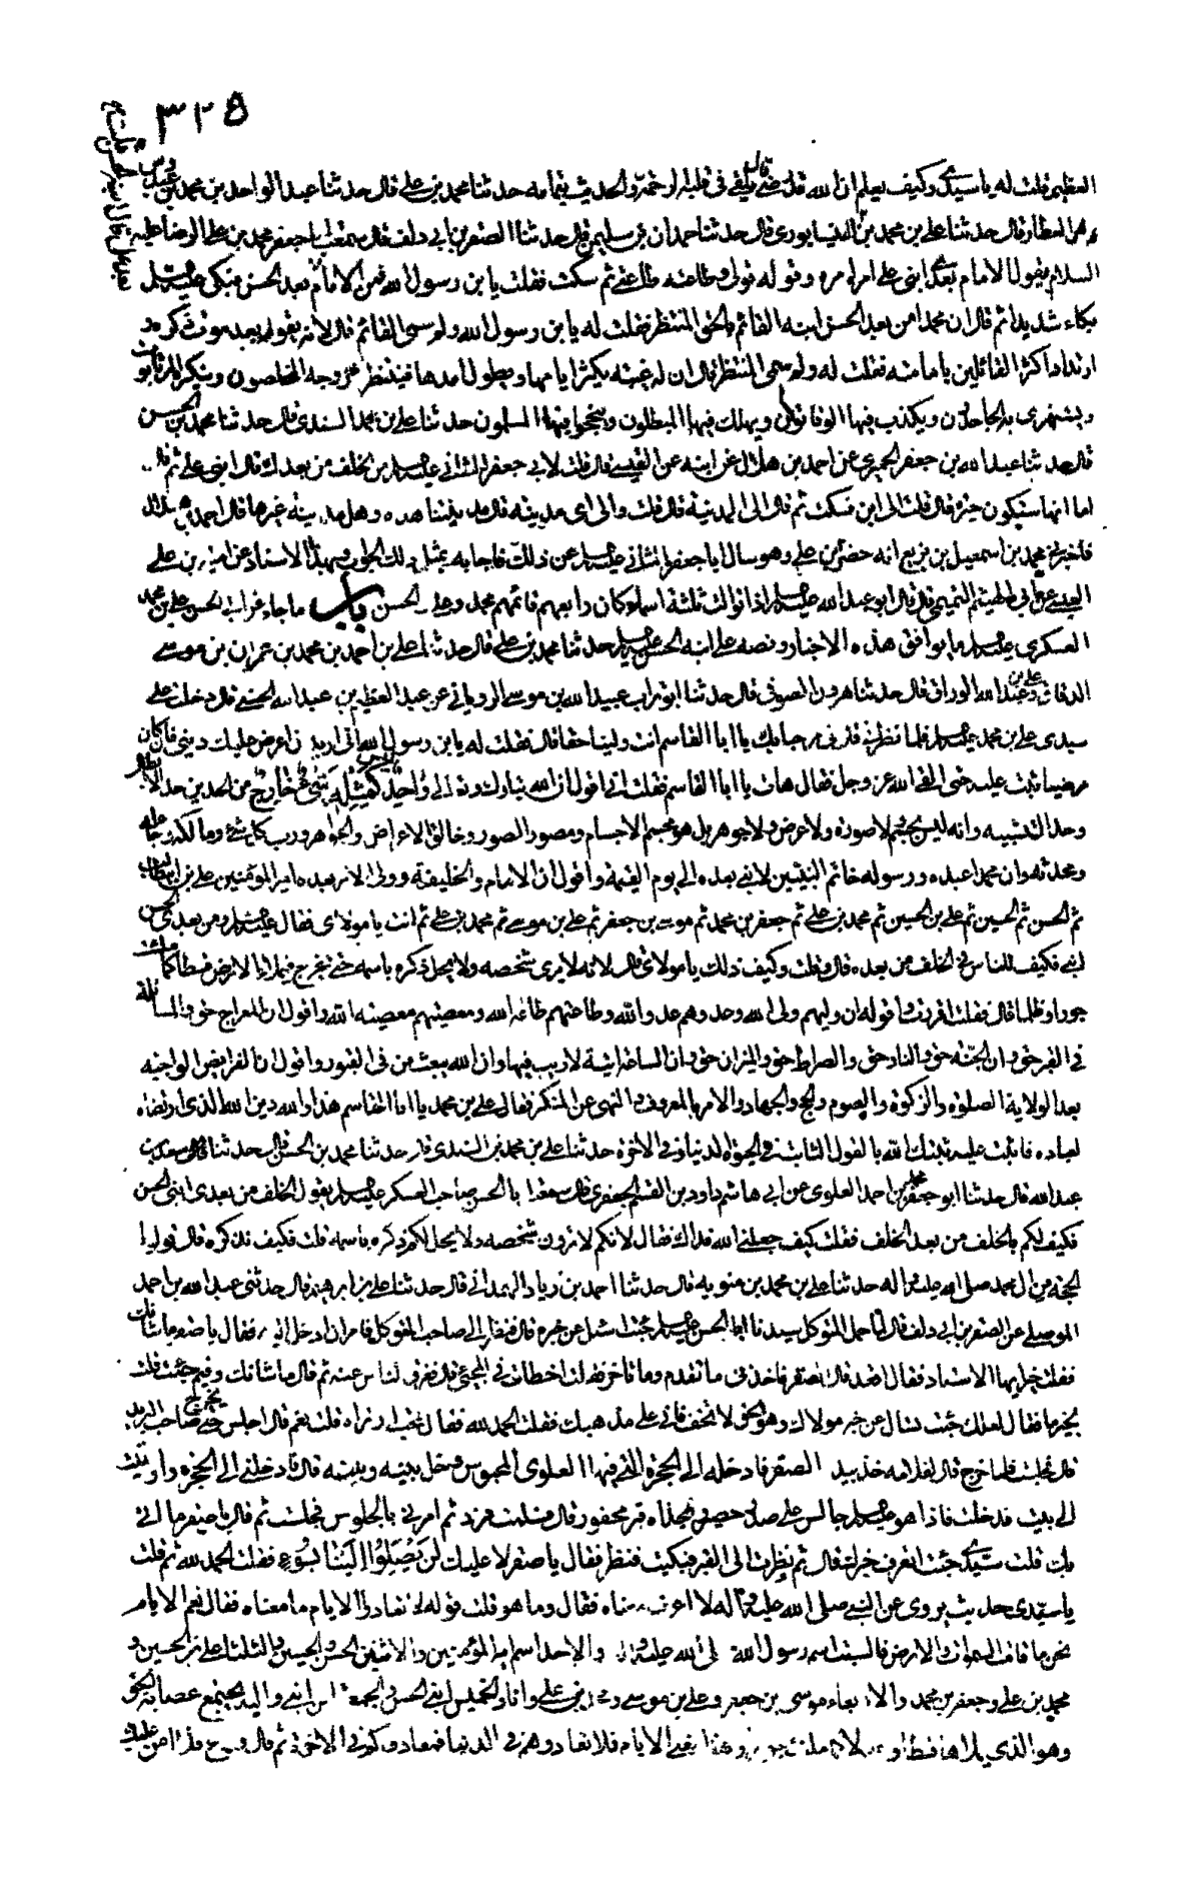 ٣٢٥
العظيم فقلت له يا سيدي وكيف يعلم ان الله قد رضي قال يلقي في قلبه الرحمة والحديث بتمامه حدثنا محمد بن علي قال حدثنا عبد الواحد بن محمد بن عبدوس
العطار قال حدثنا علي بن محمد بن النيسابوري قال حدثنا حمدان بن سليمن قال حدثنا الصقر بن ابي دلف قال سمعت ابا جعفر محمد بن علي الرضا عليه
السلام يقول الامام بعدي ابني علي امره امري وقوله قولي وطاعته طاعتي ثم سكت فقلت يا بن رسول الله فمن الامام بعد الحسن فبكى عليه السلام
بكاء شديدا ثم قال ان محمدا من بعد الحسن ابنه القائم بالحق المنتظر فقلت له يا بن رسول الله ولم سمي القائم قال لانه يقوم بعد موت ذكره و
ارتداد اكثر القائلين بامامته فقلت له ولم سمي المنتظر قال ان له غيبة يكثر ايامها ويطول امدها فينتظر خروجه المخلصون وينكره المرتابون
ويستهزئ به الجاحدون ويكذب فيها الوقاتون ويهلك فيها المبطلون وينجوا فيها المسلمون حدثنا علي بن محمد السندي قال حدثنا محمد بن الحسن
قال حدثنا عبد الله بن جعفر الحميري عن احمد بن هلال عن ابنه عن القيسي قال قلت لابي جعفر الثاني عليه السلام من الخلف من بعدك قال ابني علي ثم قال
اما انها ستكون حيرة قال قلت الى اين فسكت ثم قال الى المدينة قال قلت والى اي مدينة قال مدينتنا هذه وهل مدينة غيرها قال احمد بن هلال
فاخبرني محمد بن اسمعيل بن بزيع انه حضر بن علي وهو سال ابا جعفر الثاني عليه السلام عن ذلك فاجابه بمثل ذلك الجواب وبهذا الاسناد عن امية بن علي
القيسي عن ابي الهيثم التميمي قال قال ابو عبد الله عليه السلام اذا توالت ثلثة اسماء كان رابعهم قائمهم محمد وعلي والحسن باب ما جاء عن ابي الحسن علي بن محمد
العسكري عليه السلام ما يوافق هذه الاخبار ونصه على ابنه الحسن عليه السلام حدثنا محمد بن علي قال حدثنا علي بن احمد بن محمد بن عمران بن موسى
الدقاق وعلي بن عبد الله الوراق قال حدثنا هرون الصوفي قال حدثنا ابو تراب عبيد الله بن موسى الروياني عن عبد العظيم بن عبد الله الحسني قال دخلت على
سيدي علي بن محمد عليه السلام فلما نظر الي قال لي مرحبا بك يا ابا القاسم انت ولينا حقا قال فقلت له يا بن رسول الله اني اريد ان اعرض عليك ديني فان كان
مرضيا ثبت عليه حتى القى الله عز وجل فقال هات يا ابا القاسم فقلت اني اقول ان الله تبارك وتعالى واحد ليس كمثله شيء خارج من الحدين حد الابطال
وحد التشبيه وانه ليس بجسم ولا صورة ولا عرض ولا جوهر بل هو مجسم الاجسام ومصور الصور وخالق الاعراض والجواهر ورب كل شيء ومالكه وجاعله
ومحدثه وان محمدا عبده ورسوله خاتم النبيين لا نبي بعده الى يوم القيمة واقول ان الامام والخليفة وولي الامر بعده امير المؤمنين علي بن ابي طالب
ثم الحسن ثم الحسين ثم علي بن الحسين ثم محمد بن علي ثم جعفر بن محمد ثم موسى بن جعفر ثم علي بن موسى ثم محمد بن علي ثم انت يا مولاي فقال عليه السلام ومن بعدي الحسن
ابني فكيف للناس في الخلف من بعده قال وقلت وكيف ذلك يا مولاي قال لانه لا يرى شخصه ولا يحل ذكره باسمه حتى يخرج فيملأ الارض قسطا كما ملئت
جورا وظلما قال فقلت اقررت واقول ان وليهم ولي الله وعدوهم عدو الله وطاعتهم طاعة الله ومعصيتهم معصية الله واقول ان المعراج حق والمسائلة
في القبر حق وان الجنة حق والنار حق والصراط حق والميزان حق وان الساعة اتية لا ريب فيها وان الله يبعث من في القبور واقول ان الفرايض الواجبة
بعد الولاية الصلوة والزكوة والصوم والحج والجهاد والامر بالمعروف والنهي عن المنكر فقال علي بن محمد يا ابا القاسم هذا والله دين الله الذي ارتضاه
لعباده فاثبت عليه ثبتك الله بالقول الثابت في الحيوة الدنيا وفي الاخرة حدثنا علي بن محمد بن السندي قال حدثنا محمد بن الحسن قال حدثنا سعد بن
عبد الله قال حدثنا ابو جعفر محمد بن احمد العلوي عن ابي هاشم داود بن القسم الجعفري قال سمعت ابا الحسن صاحب العسكر عليه السلام يقول الخلف من بعدي ابني الحسن
فكيف لكم بالخلف من بعد الخلف فقلت كيف جعلني الله فداك فقال لانكم لا ترون شخصه ولا يحل لكم ذكره باسمه قلت فكيف نذكره قال قولوا
الحجة من ال محمد صلى الله عليه واله حدثنا علي بن محمد بن متويه قال حدثنا احمد بن زياد الهمداني قال حدثنا علي بن ابراهيم قال حدثني عبد الله بن احمد
الموصلي عن الصقر بن ابي دلف قال لما حمل المتوكل سيدنا ابا الحسن عليه السلام جئت اسئل عن خبره قال فنظر الي صاحب المتوكل فامر ان ادخل اليه فقال يا صقر ما شانك
فقلت خير ايها الاستاد فقال اقعد قال الصقر فاخذني ما تقدم وما تاخر فقلت اخطات في المجيء قال فزجر الناس عنه ثم قال ما شانك وفيم جئت قلت
بخير ما فقال لعلك جئت تسال عن خبر مولاك وهو الحق لا تخف فاني على مذهبك فقلت الحمد لله فقال تحب ان تراه قلت نعم قال اجلس حتى يخرج صاحب البريد
قال فجلست فلما خرج قال لغلامه خذ بيد الصقر فادخله الى الحجرة التي فيها العلوي المحبوس وخل بينه وبينه قال فادخلني الى الحجرة واومئت
الى بيت فدخلت فاذا هو عليه السلام جالس على صدر حصير وبحذاه قبر محفور قال فسلمت فرد ثم امرني بالجلوس فجلست ثم قال يا صقر ما اتى
بك قلت سيدي جئت اتعرف خبرك قال ثم نظرت الى القبر فبكيت فنظر فقال يا صقر لا عليك لن يصلوا الينا بسوء فقلت الحمد لله ثم قلت
يا سيدي حديث يروى عن النبي صلى الله عليه واله لا اعرف معناه فقال وما هو قلت قوله لا تعادوا الايام ما معناه فقال نعم الايام
نحن ما قامت السموات والارض فالسبت اسم رسول الله صلى الله عليه واله والاحد اسم امير المؤمنين والاثنين الحسن والحسين والثلثا علي بن الحسين و
محمد بن علي وجعفر بن محمد والاربعاء موسى بن جعفر وعلي بن موسى ومحمد بن علي وانا والخميس ابني الحسن والجمعة ابن ابني واليه يجتمع عصابة الحق
وهو الذي يملاها قسطا وعدلا كما ملئت جورا وهذا معنى الايام فلا تعادوهم في الدنيا فيعادوكم في الاخرة ثم قال ودع فلا امن عليك